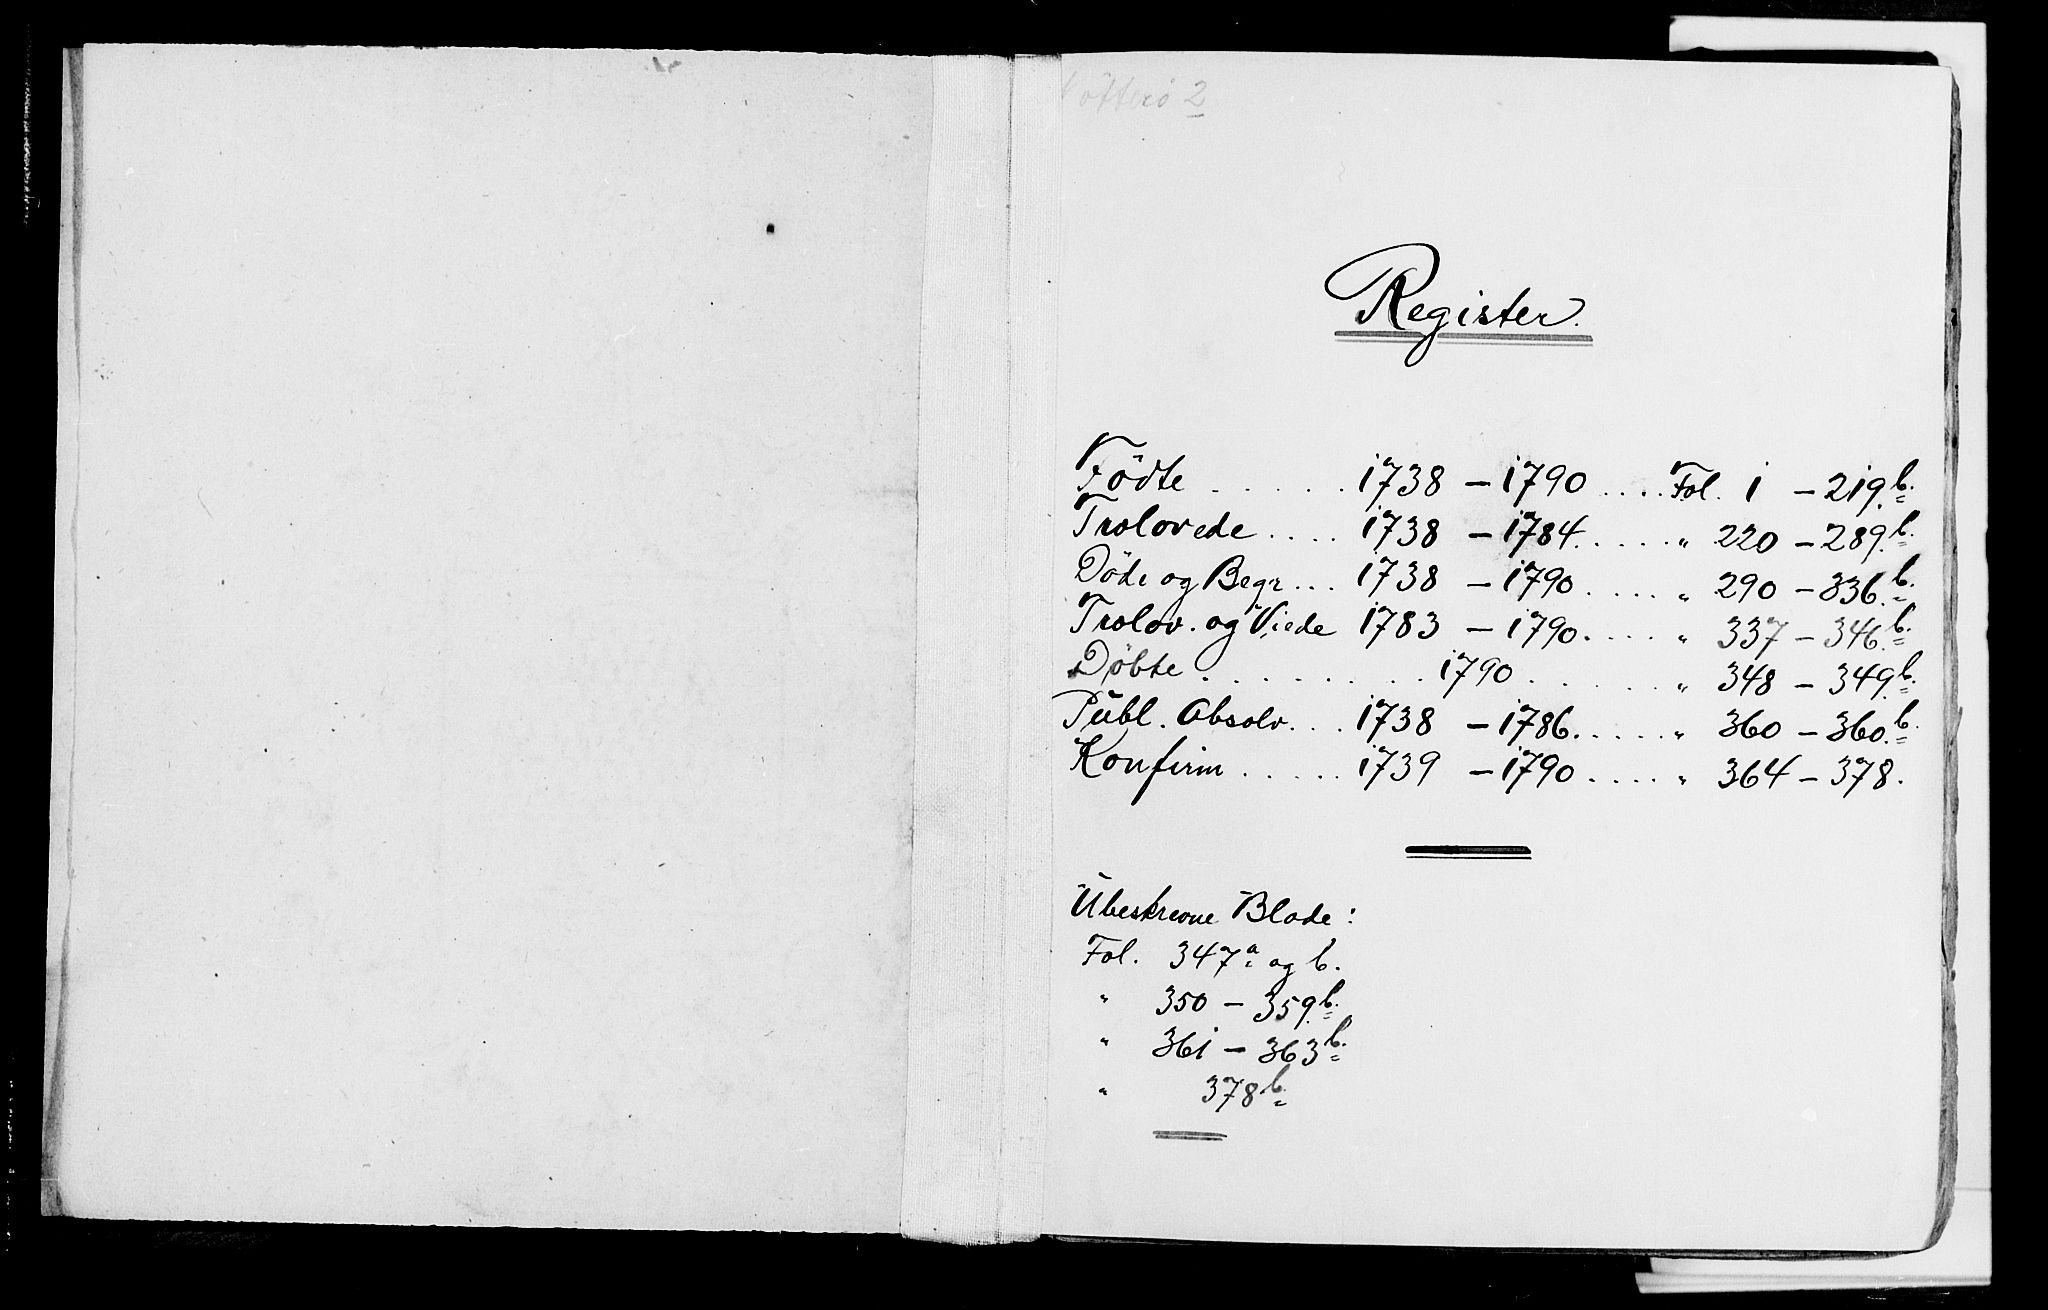 Nötterö 2
Register.
Födte ..... 1738 - 1790 .... Fol. 1 - 219.b.
Trolovede .... 1738 - 1784 ..... " 220 - 289.b.
Döde og Begr... 1738 - 1790 ..... " 290 - 336.b.
Trolov. og Viede 1783 - 1790 ..... " 337 - 346.b.
Döbte ........ 1790 ....... " 348 - 349.b.
Publ. Absolv... 1738 - 1786 ..... " 360 - 360.b.
Konfirm ..... 1739 - 1790 ..... " 364 - 378.
Ubeskrevne Blade:
Fol. 347a og b.
" 350 - 359b.
" 361 - 363b.
" 378b.